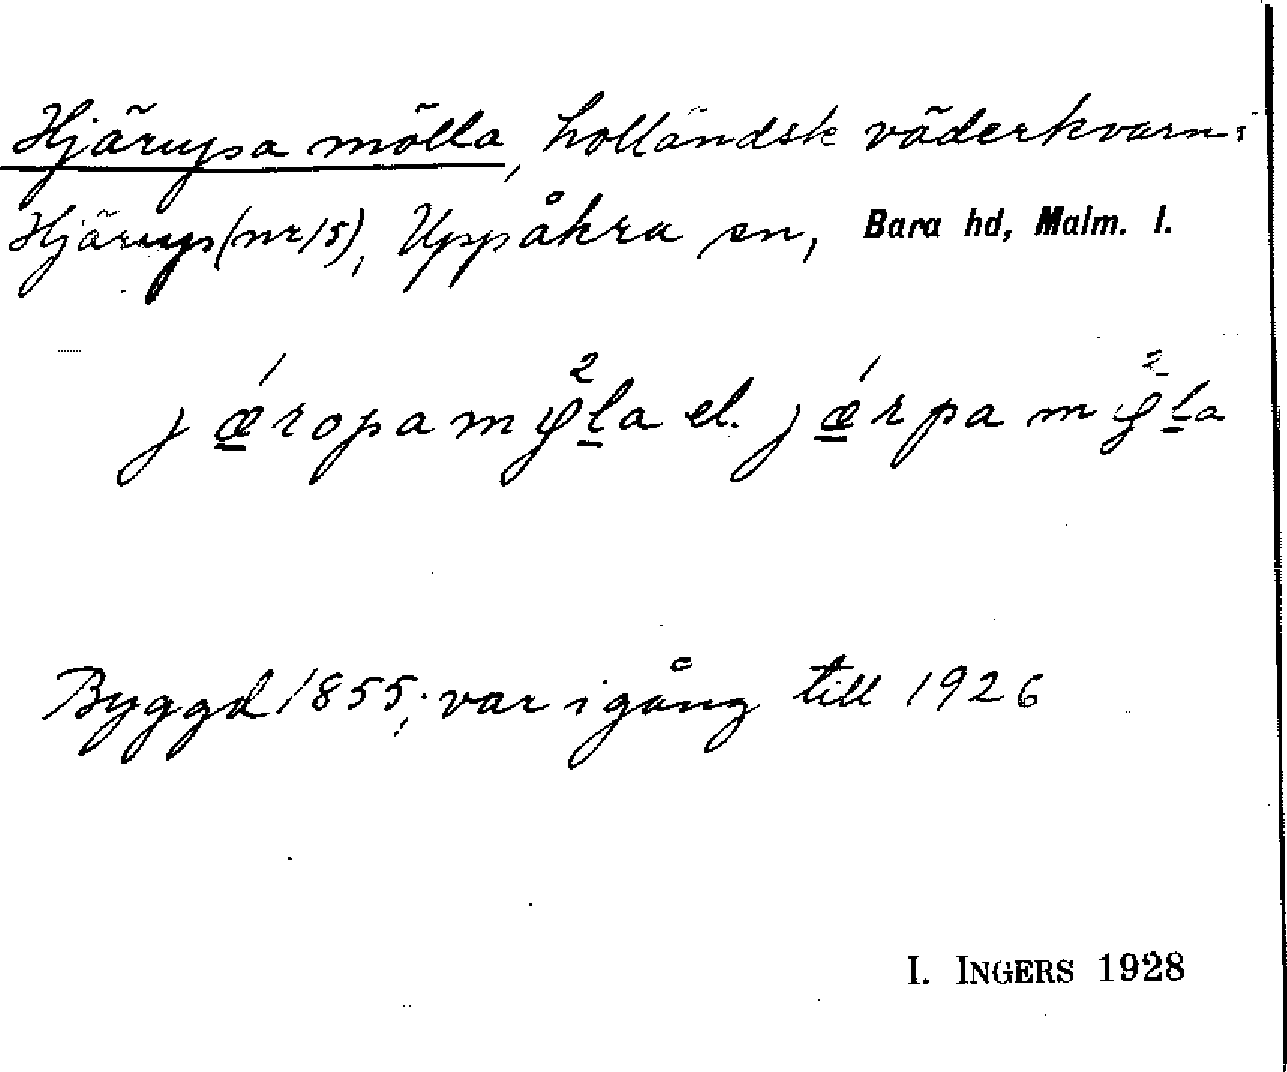 Hjärupa mölla, holländsk väderkvarn i
Hjärup (nr 15), Uppåkra sn, Bara hd, Malm. l.
jǽropamø̊la el. jǽrpa mø̊la
Byggd 1855; var i gång till 1926
I. INGERS 1928